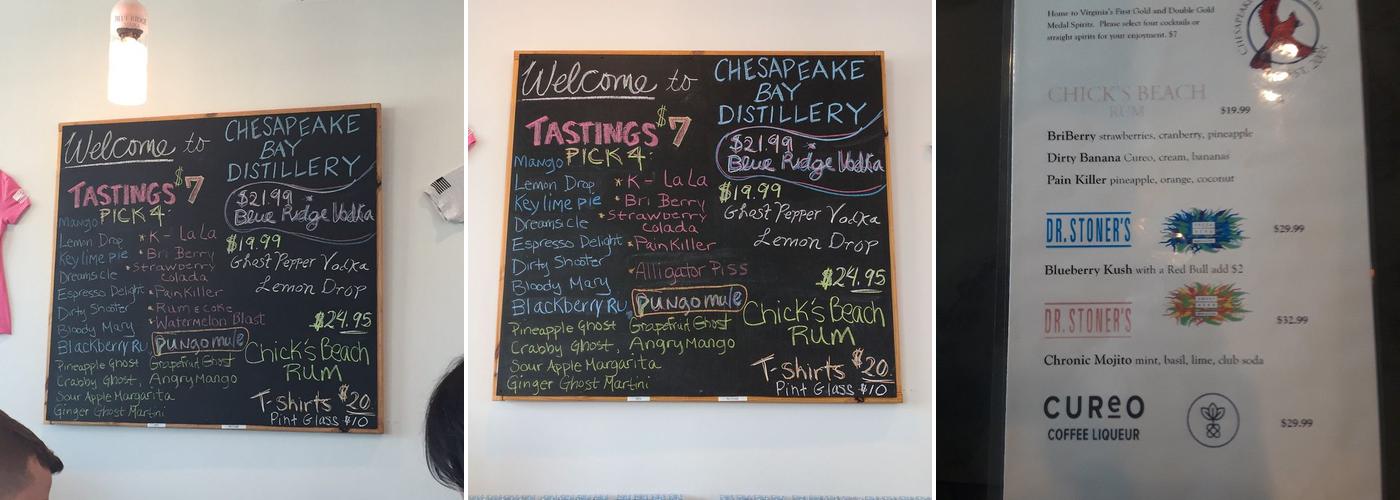 BLUE RIDGE
Welcome to
CHESAPEAKE
BAY
DISTILLERY
TASTINGS $7
PICK 4:
$21.99 *
Blue Ridge Vodka
$19.99
Ghost Pepper Vodka
Lemon Drop
$24.95
Chick's Beach
RUM
T-shirts $20
Pint Glass $10
Mango
Lemon Drop
Key lime pie
Dreamsicle
Espresso Delight
Dirty Shooter
Bloody Mary
Blackberry Ru
*K-La La
*Bri Berry
*Strawberry
Colada
*PainKiller
*Rum & Coke
*Watermelon Blast
Pungo mule
Pineapple Ghost Grapefruit Ghost
Crabby Ghost, Angry Mango
Sour Apple Margarita
Ginger Ghost Martini
Welcome to
CHESAPEAKE
BAY
DISTILLERY
TASTINGS $7
PICK 4:
$21.99 *
Blue Ridge Vodka
$19.99
Ghost Pepper Vodka
Lemon Drop
$24.95
Chick's Beach
RUM
T-shirts $20
Pint Glass $10
Mango
Lemon Drop
Key lime pie
Dreamsicle
Espresso Delight
Dirty Shooter
Bloody Mary
Blackberry Ru
*K-La La
*Bri Berry
*Strawberry
Colada
*PainKiller
*Alligator Piss
Pungo mule
Pineapple Ghost Grapefruit Ghost
Crabby Ghost, Angry Mango
Sour Apple Margarita
Ginger Ghost Martini
Home to Virginia's First Gold and Double Gold
Medal Spirits. Please select four cocktails or
straight spirits for your enjoyment. $7
CHICK'S BEACH
RUM
$19.99
BriBerry strawberries, cranberry, pineapple
Dirty Banana Cureo, cream, bananas
Pain Killer pineapple, orange, coconut
DR. STONER'S
$29.99
Blueberry Kush with a Red Bull add $2
DR. STONER'S
$32.99
Chronic Mojito mint, basil, lime, club soda
CUReO
COFFEE LIQUEUR
$29.99